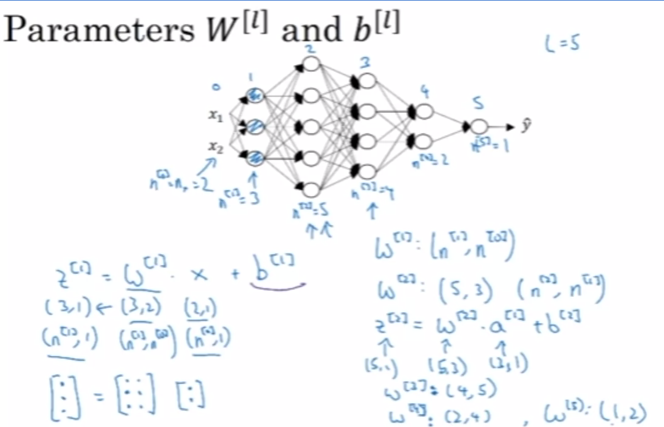 Parameters W^[l] and b^[l]
L=5
0 1 2 3 4 5
x₁
x₂
ŷ
n^[0]=n_x=2
n^[1]=3
n^[2]=5
n^[3]=4
n^[4]=2
n^[5]=1
z^[1] = W^[1] · x + b^[1]
(3,1) ← (3,2) (2,1)
(n^[1],1) (n^[1],n^[0]) (n^[0],1)
W^[1]: (n^[1], n^[0])
W^[2]: (5,3) (n^[2], n^[1])
z^[2] = W^[2] · a^[1] + b^[2]
(5,1) (5,3) (3,1)
W^[3]: (4,5)
W^[4]: (2,4) , W^[5]: (1,2)